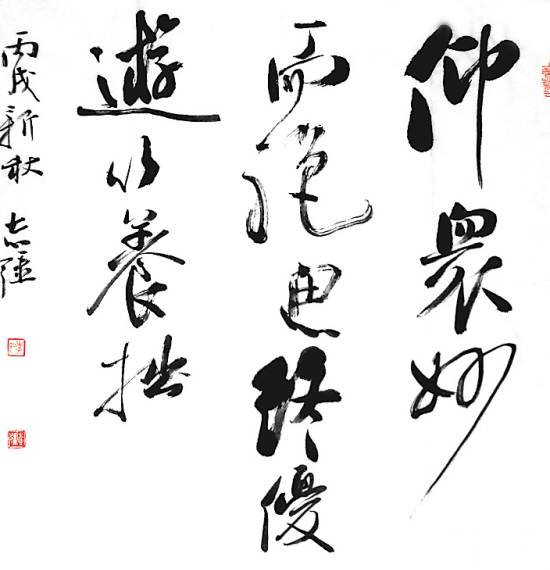 仰衆妙
而绝思終優
遊以養拙
丙戌新秋 志强